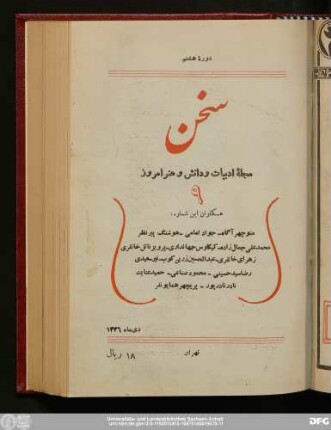 دورهٔ هشتم
سخن
مجلهٔ ادبیات و دانش و هنر امروز
همکاران این شماره:
منوچهر آگاه - جواد امامی - هوشنگ پیرنظر
محمدعلی جمال‌زاده - کیکاوس جهانداری - پرویز ناتل خانلری
زهرای خانلری - عبدالحسین زرین‌کوب -
رضا سید حسینی - محمود صناعی - حمید عنایت
نادر نادرپور - پریچهر همایونفر
دی‌ماه ۱۳۳۶
تهران
۱۸ ریال
Universitäts- und Landesbibliothek Sachsen-Anhalt
DFG